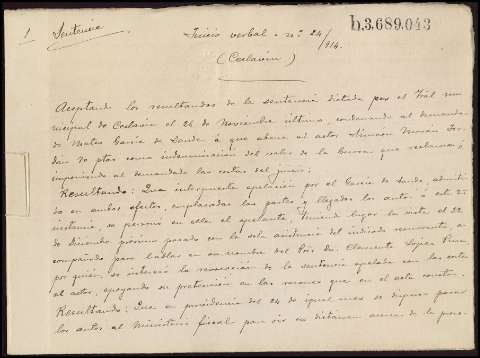 1 Sentencia
Juicio verbal - nº 24/914.
b.3.689.043
(Ceclavín)
Aceptando los resultandos de la sentencia dictada por el Tral mu
nicipal de Ceclavín el 26 de Noviembre último, condenando al demanda
do Mateo García de Sande á que abone al actor
70 ptas como indemnización del valor de la burra que reclama é
imponiendo al demandado las costas del juicio;
Resultando: Que interpuesta apelación por el García de Sande, admiti
da en ambos efectos, emplazadas las partes y llegados los autos á esta
instancia, se personó en ella el apelante, teniendo lugar la vista el 22
de diciembre próximo pasado con la sola asistencia del indicado recurrente, á
compañado para hablar en su nombre del Clemente López
por quien se interesó la revocación de la sentencia apelada con las costas
al actor, apoyando su pretensión en las razones que en el acta constan.
Resultando: Que en providencia del 24 de igual mes se dispuso pasar
los autos al Ministerio fiscal para oir su dictamen acerca de la